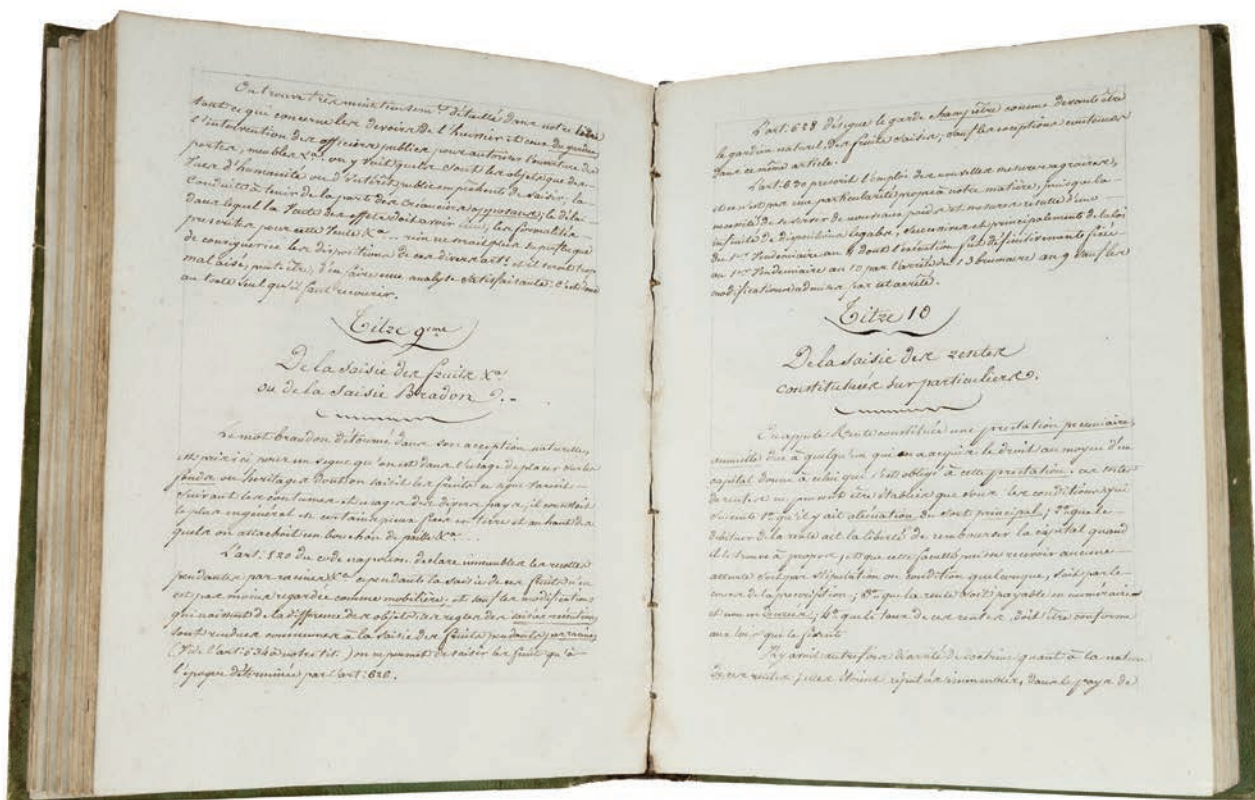 On trouve très minutieusem.t détaillé dans notre titre
tout ce qui concerne les devoirs de l'huissier et ceux du gardien
l'intervention des officiers publics pour autoriser l'ouverture des
portes, meubles &a. on y voit quels sont les objets que des
vues d'humanité ou d'intérêt public empêchent de saisir; la
conduite à tenir de la part des créanciers opposans; le délai
dans lequel la vente des effets doit avoir lieu, les formalités
prescrites pour cette vente &a... rien ne serait plus superflu que
de consigner ici les dispositions de ces divers art.s et il serait trop
malaisé, peut être, d'en faire une analyse satisfaisante: c'est donc
au texte seul qu'il faut recourir.
Titre 9eme
De la saisie des fruits &a.
ou de la saisie Brandon.
Le mot brandon détourné dans son acception naturelle,
est pris ici pour un signe qu'on est dans l'usage de placer sur les
fonds ou héritages dont on saisit les fruits
suivant les coutumes et usages des divers pays; il consistait
le plus en général et certains pieux fixés en terre et au haut des
quels on attachait un bouchon de paille &a...
L'art: 520 du code napoléon déclare immeubles les récoltes
pendantes par racines &a cependant la saisie de ces fruits n'en
est pas moins regardée comme mobilière, et sauf les modifications
qui naissent de la différence des objets, les règles des saisies exécution
sont rendues communes à la saisie des fruits pendants par racines
(V. de l'art: 634 à notre tit.) on ne permet de saisir les fruits qu'à
l'époque déterminée par l'art: 626.
L'art: 628 désigne le garde champêtre comme devant être
le gardien naturel des fruits saisis, sauf les exceptions contenues
dans ce même article.
L'art: 630 prescrit l'emploi des nouvelles mesures agraires,
et ce n'est pas une particularité propre à notre matière, puisque la
nécessité de se servir de nouveaux poids et mesures résulte d'une
infinité de dispositions légales, successives et principalement de la loi
du 1er Vendémiaire an 4 dont l'exécution fut définitivement fixée
au 1er Vendémiaire an 10 par l'arrêté du 13 brumaire an 9 sauf les
modifications admises par cet arrêté.
Titre 10
De la saisie des rentes
constituées sur particuliers.
On appelle Rente constituée une prestation pécuniaire,
annuelle due à quelqu'un qui en a acquis le droit au moyen d'un
capital donné à celui qui s'est obligé à cette prestation; ces sortes
de rentes ne peuvent être établies que sous les conditions qui
suivent 1° qu'il y ait aliénation du sort principal; 2° que le
débiteur de la rente ait la liberté de rembourser le capital quand
il le trouve à propos, et que cette faculté puisse recevoir aucune
atteinte soit par stipulation ou condition quelconque, soit par le
cours de la prescription; 3° que la rente soit payable en numéraire
et non en denrées; 4° que le taux de ces rentes, soit être conforme
aux lois qui le fixent.
Il y avait autrefois diversité de doctrine quant à la nature
de ces rentes; elles étaient réputées immeubles, dans le pays de